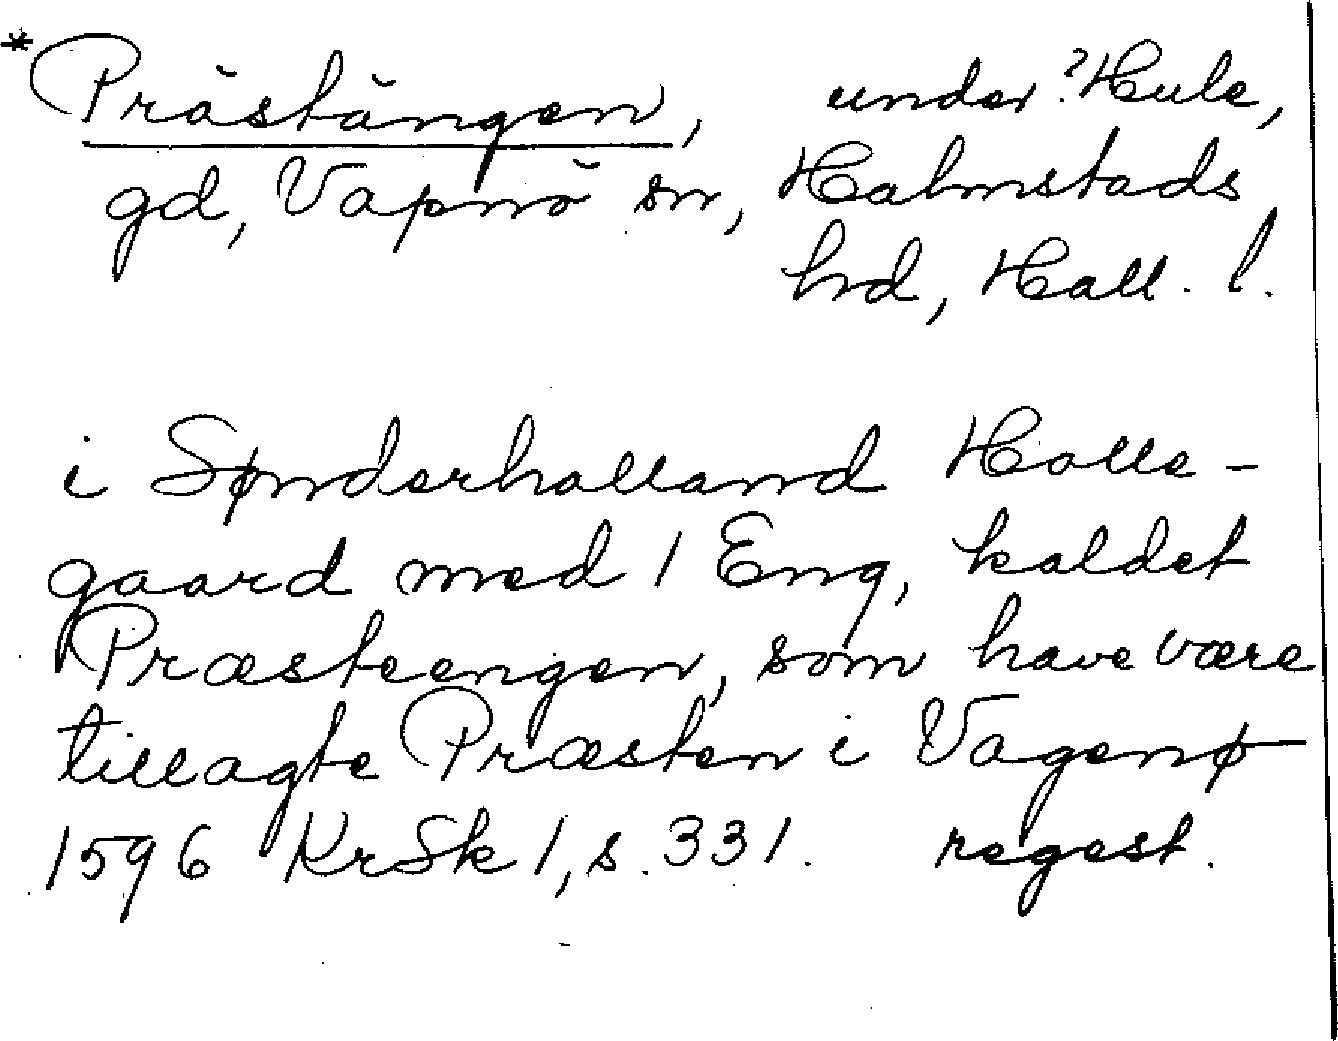 *Prästängen, under ?Hule,
gd, Vapnö sn, Halmstads
hd, Hall. l.
i Sønderhalland Holle-
gaard med 1 Eng, kaldet
Præsteengen, som have være
tillagte Præsten i Vagenø
1596 KrSk 1, s. 331. regest.